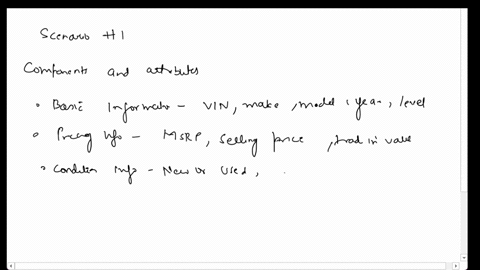 Scenario #1
Components and attributes
• Basic Information - VIN, make, model, year, level
• Pricing Info - MSRP, Selling price, trade in value
• Condition Info - New or Used,